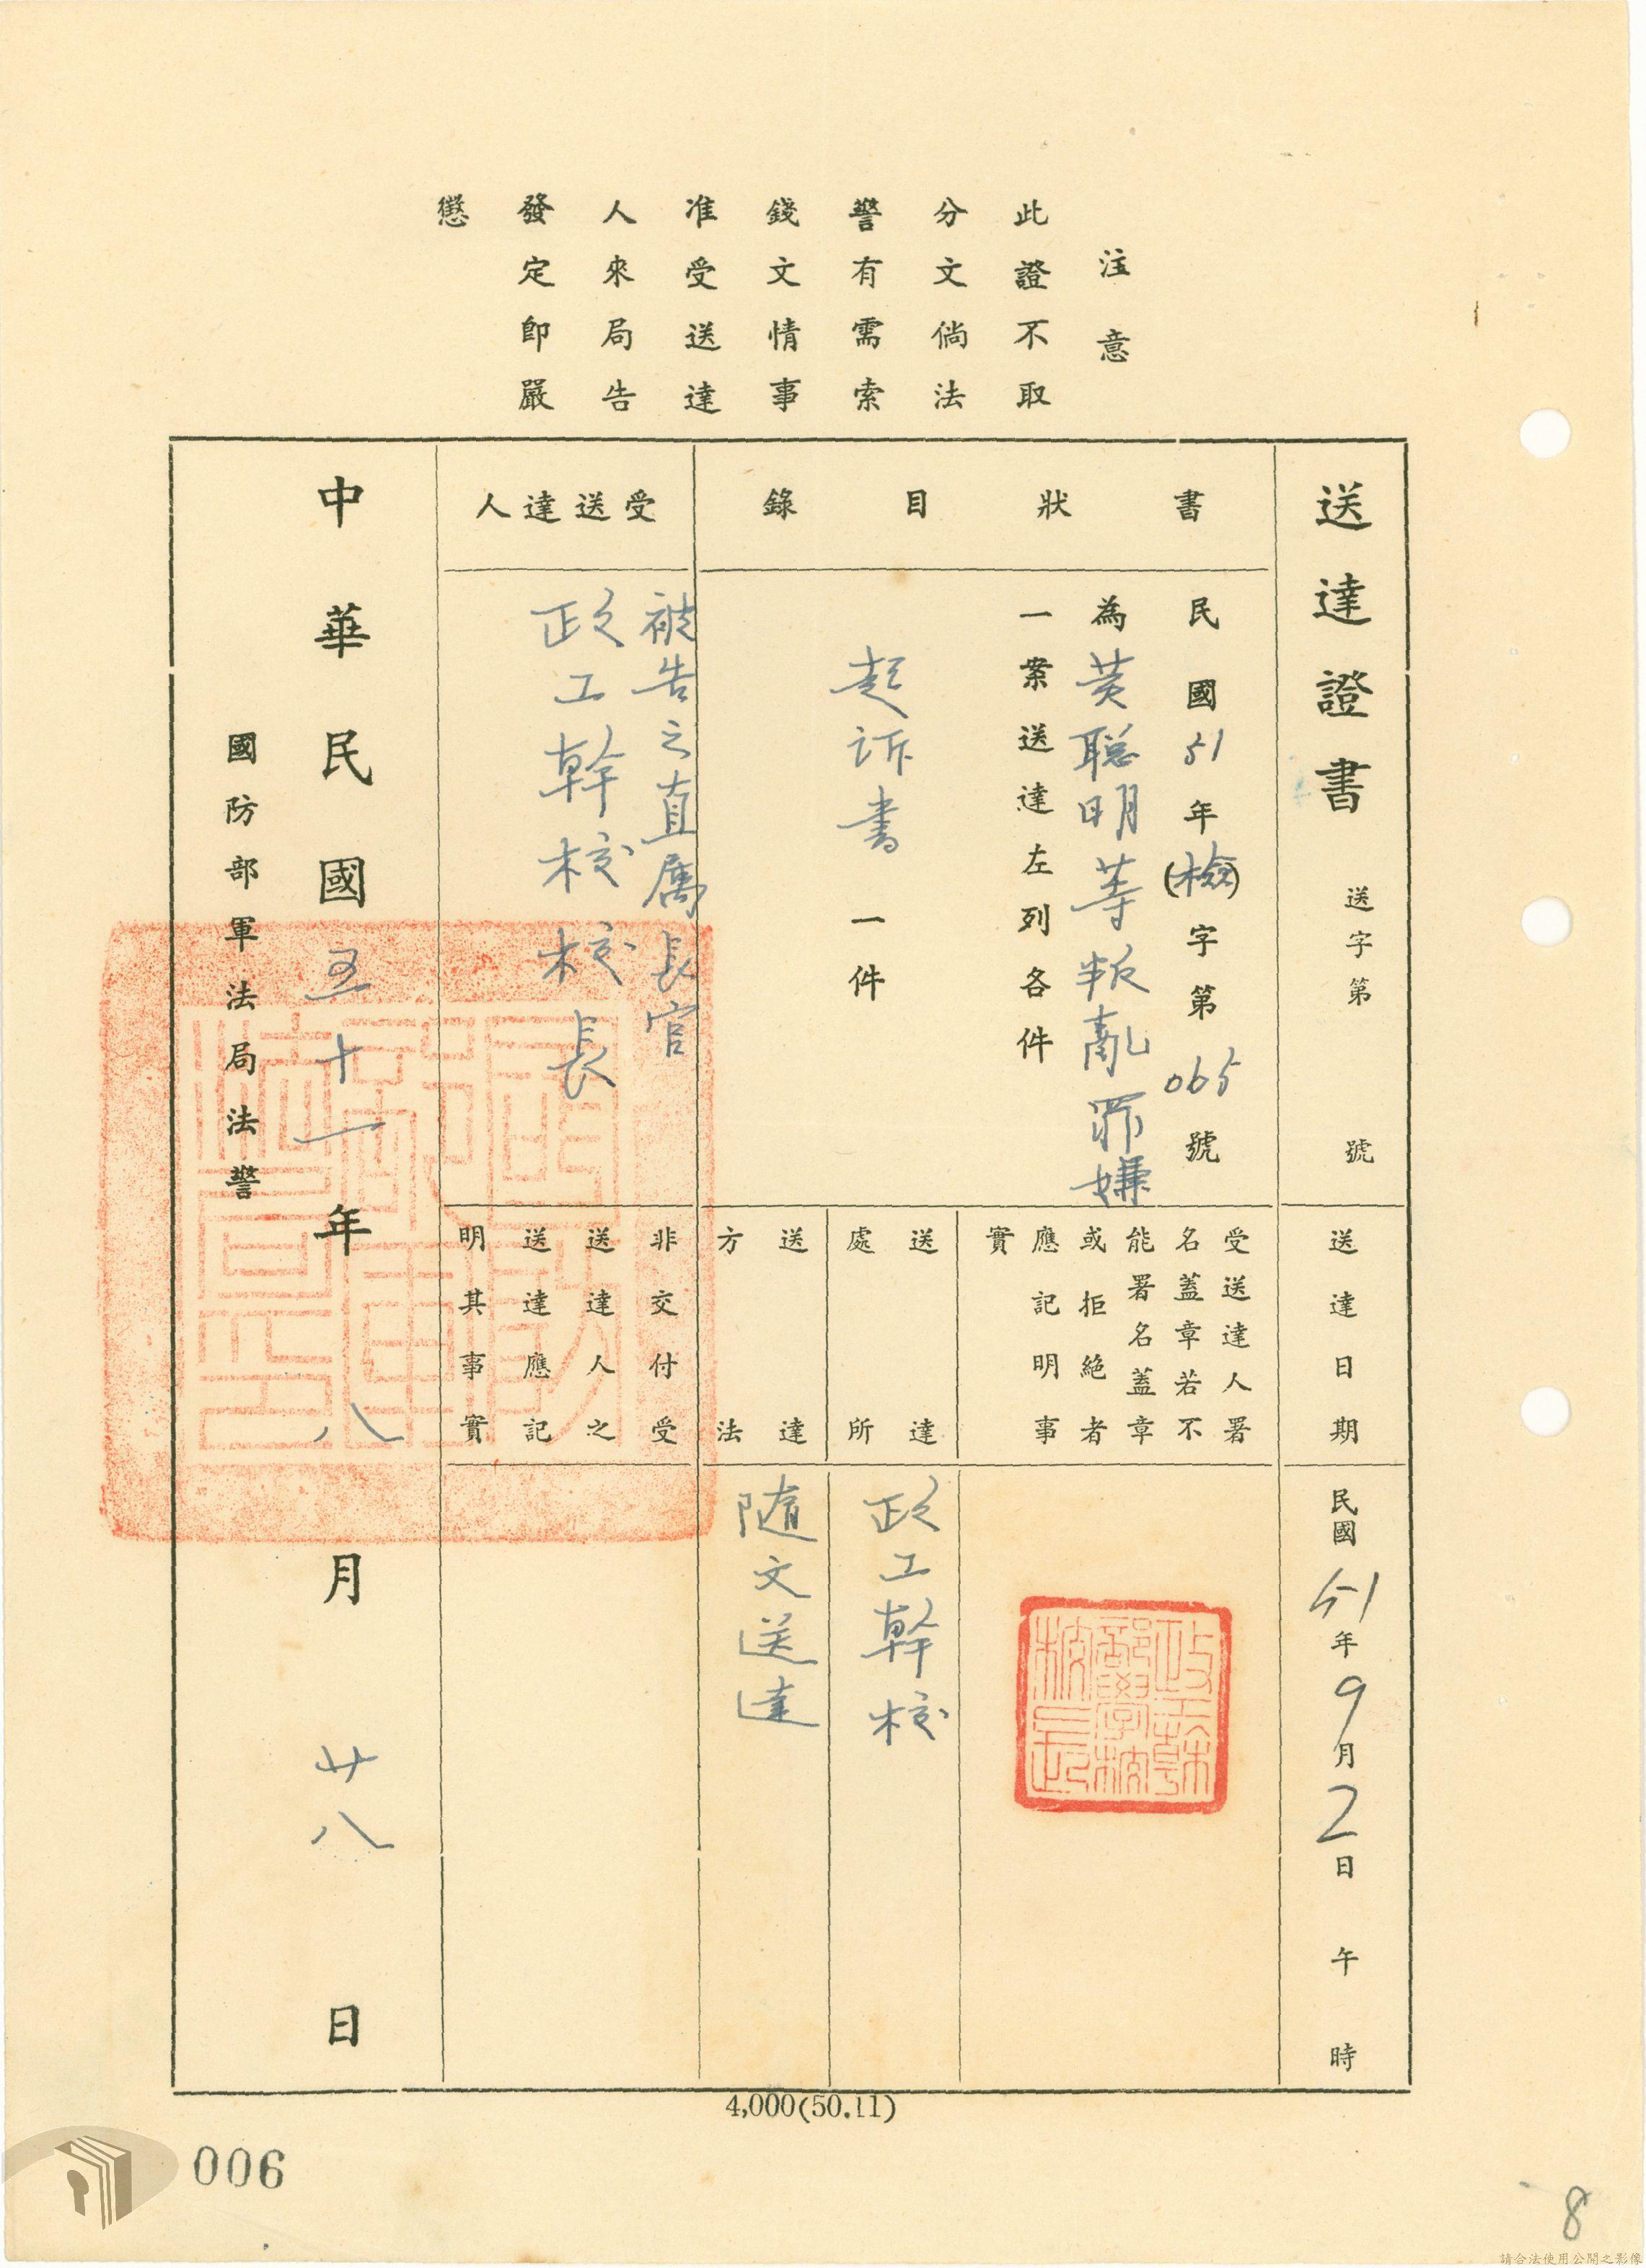 注意
此證不取
分文倘法
警有需索
錢文情事
准受送達
人來局告
發定即嚴
懲
送達證書 送字第 號
送達日期
民國51年9月2日午時
書狀目錄
民國51年(檢)字第065號
為黃聰明等叛亂罪嫌
一案送達左列各件
起訴書一件
受送達人署
名蓋章若不
能署名蓋章
或拒絕者
應記明事
實
政工幹
部學校
校長
送達
處所
政工幹校
送達
方法
隨文送達
受送達人
被告之直屬長官
政工幹校校長
非交付受
送達人之
送達應記
明其事實
中華民國五十一年八月廿八日
國防部軍法局法警
4,000(50.11)
006
8
請合法使用公開之影像